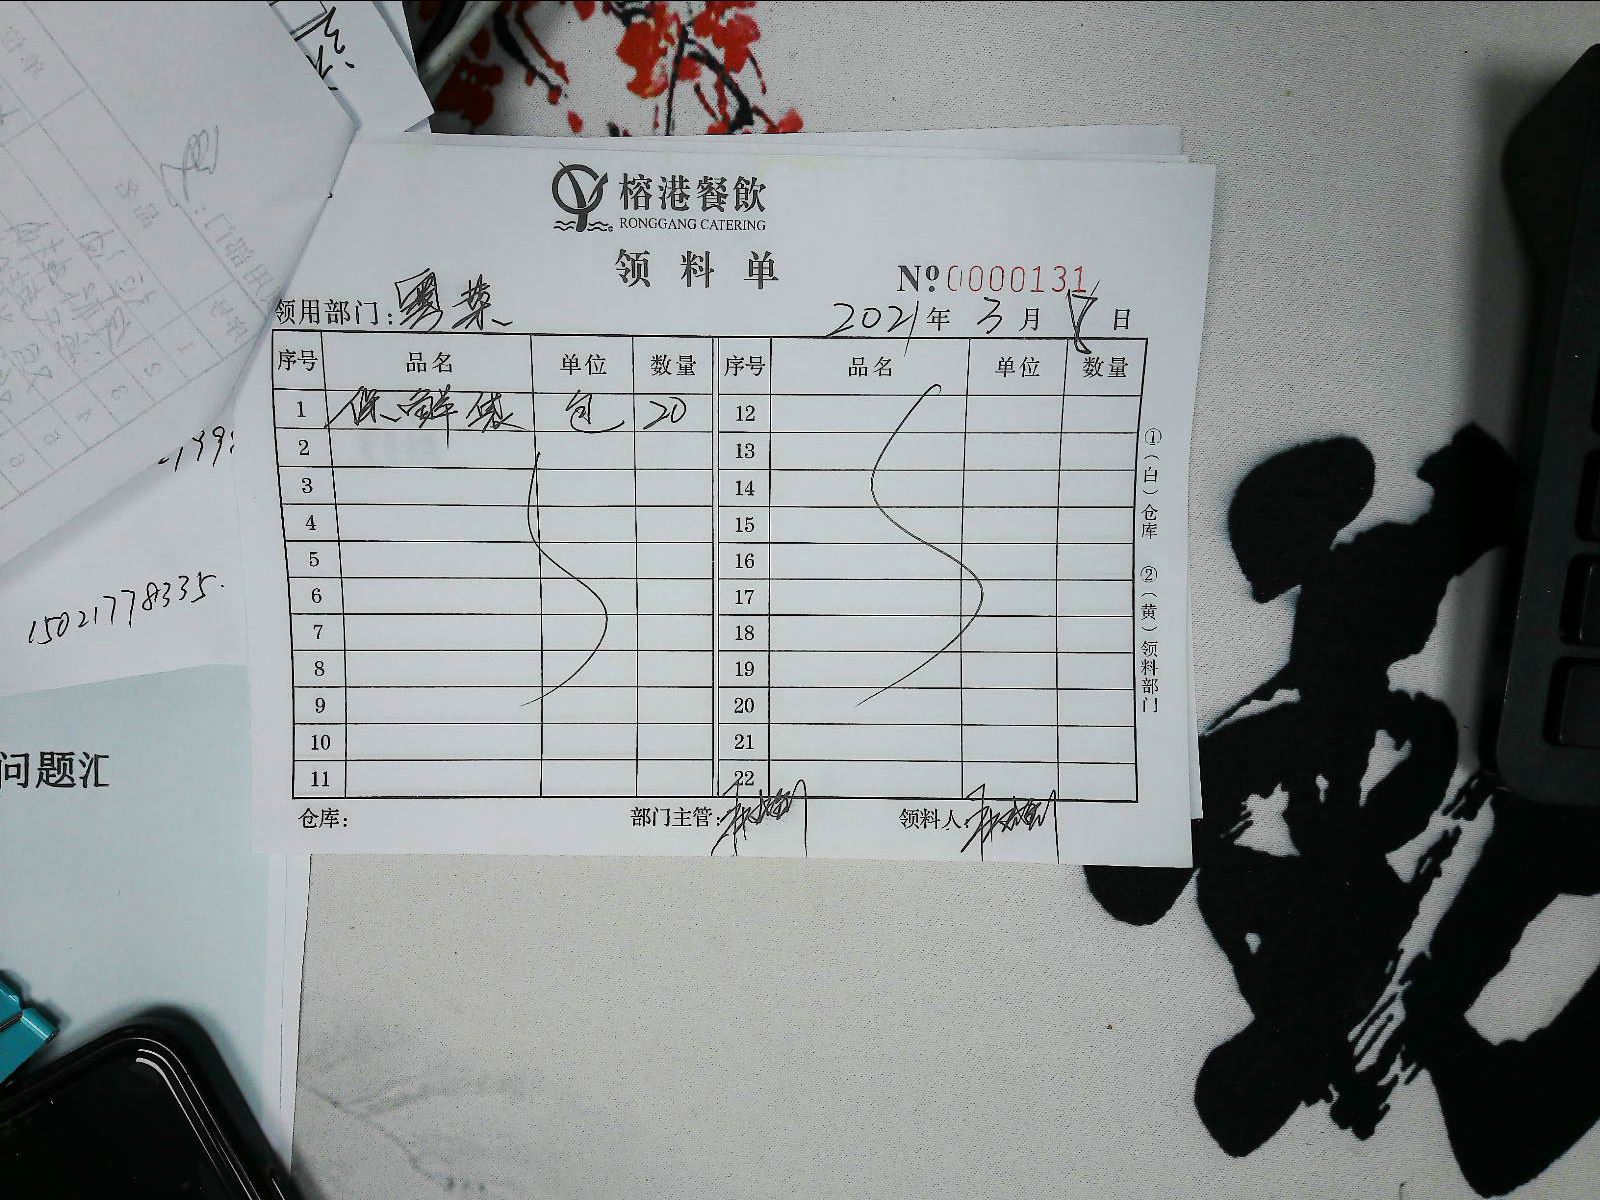 榕港餐飲
RONGGANG CATERING
领料单
№ 0000131
领用部门: 粤菜
2021年 3月 8日
序号 品名 单位 数量 序号 品名 单位 数量
1 保鲜袋 包 20 12
2 13
3 14
4 15
5 16
6 17
7 18
8 19
9 20
10 21
11 22
仓库: 部门主管: 领料人:
①(白)仓库 ②(黄)领料部门
15021778335.
问题汇